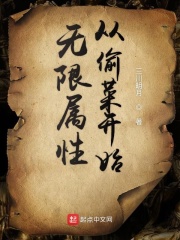 从偷菜开始
无限属性
三川郡守 著
起点中文网